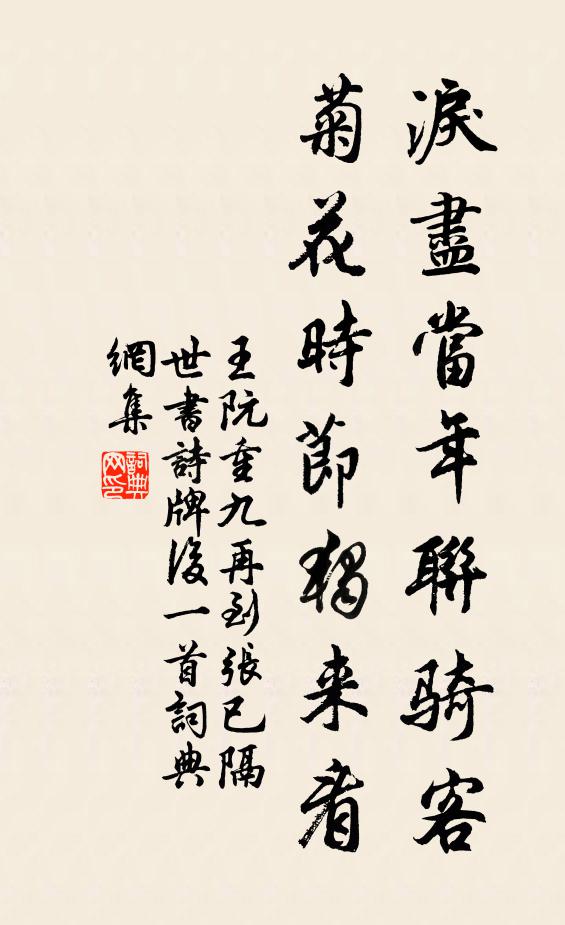 淚盡當年聯騎客
菊花時節獨来看
王阮重九再到張已隔
世書詩牌後一首詞典
網集
詞典網印